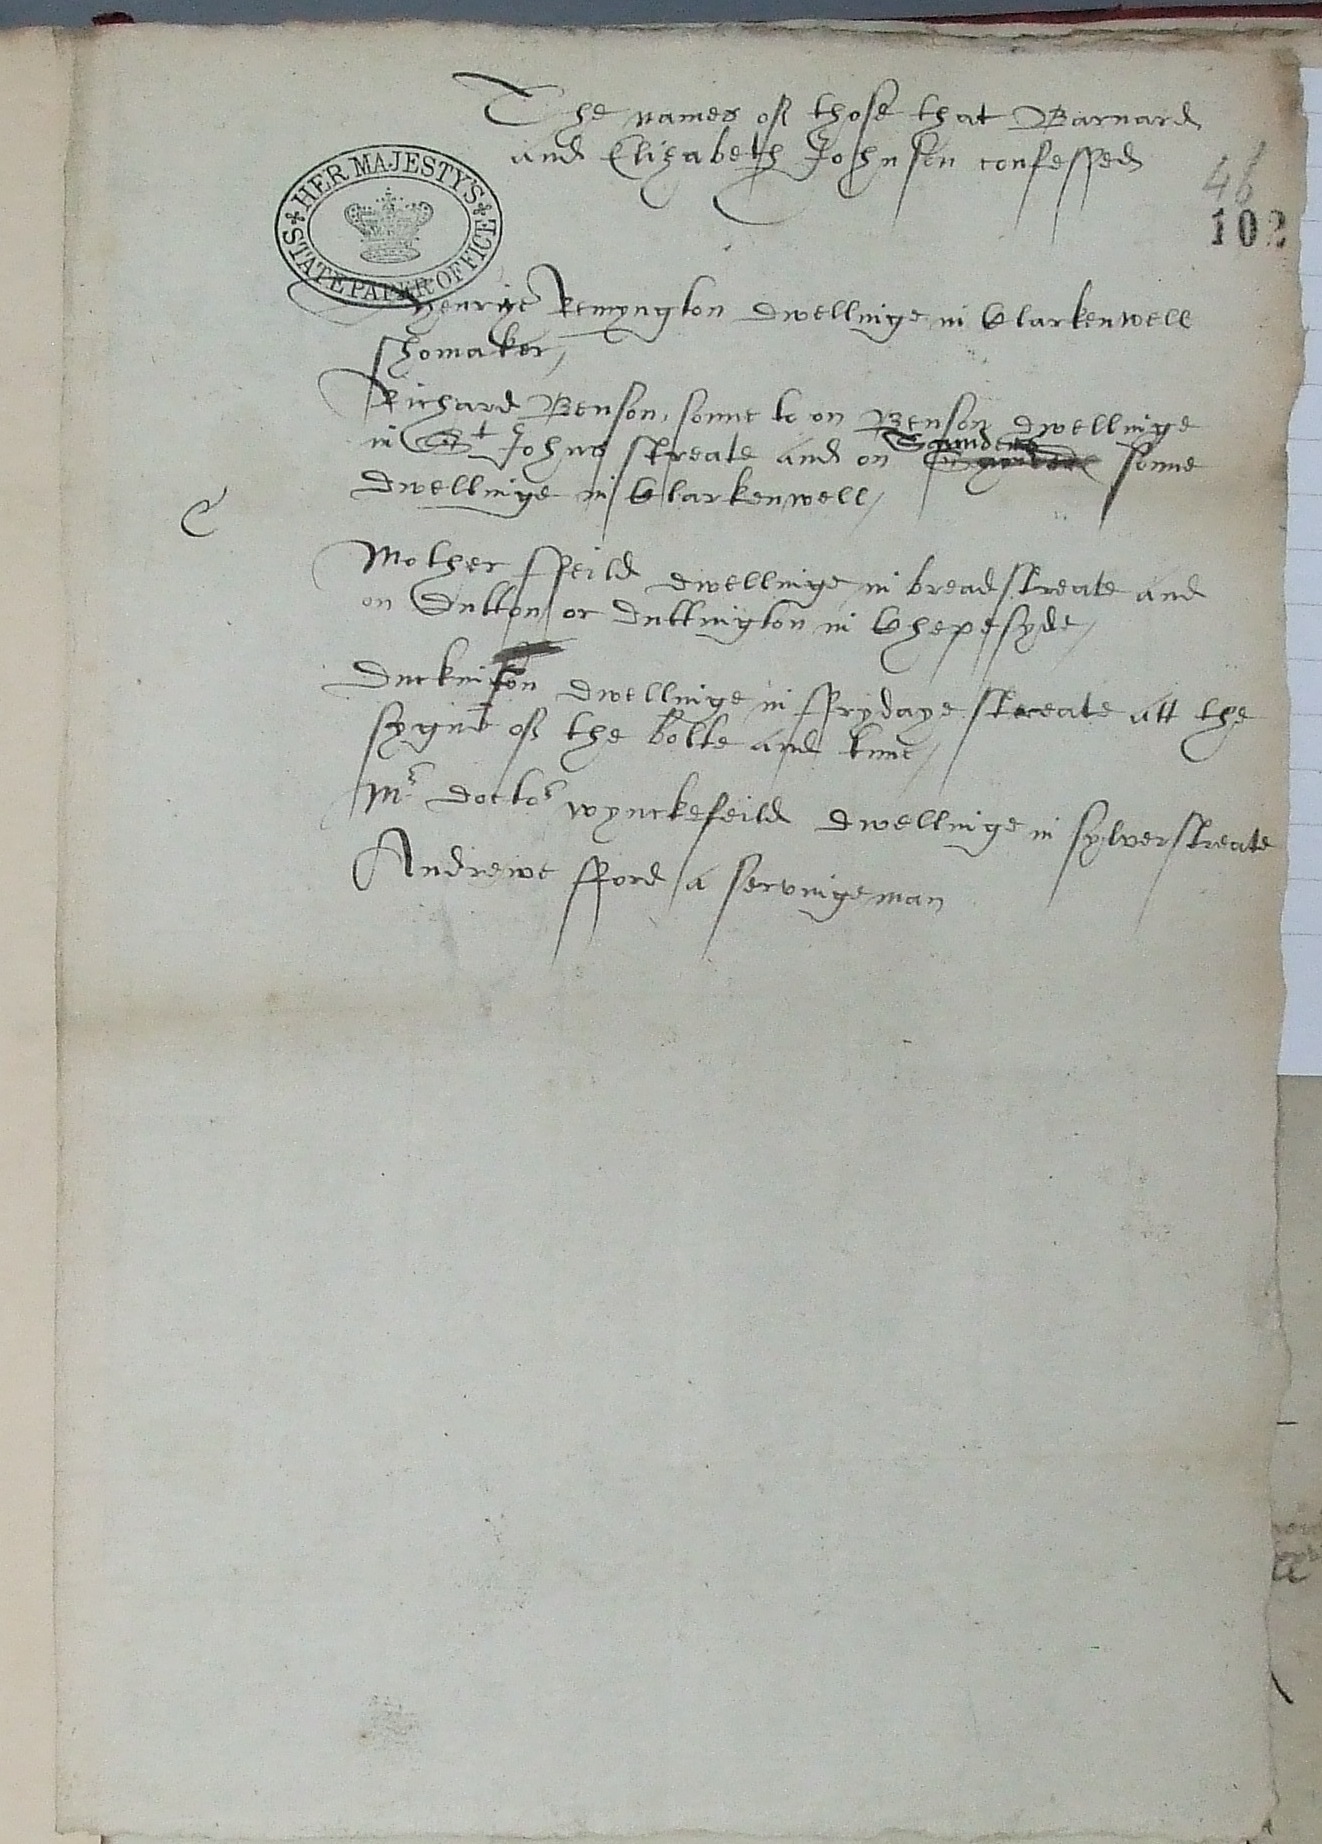 The names of those that Barnard
and Elizabeth Johnson confessed
46
102
HER MAJESTY'S STATE PAPER OFFICE
Henrye Remyngton dwellinge in Clarkenwell
shomaker,
Richard Benson, sonne to on Benson dwellinge
in St Johns streate and on Saunders sonne
dwellinge in Clarkenwell,
Mother ffeild dwellinge in breadstreate and
on Dutton or Duttington in Chepesyde,
Duckinson dwellinge in ffrydaye streate att the
sygne of the bolte and tune,
Mr doctor wynckefeild dwellinge in sylverstreate
Andrewe fford a servingeman